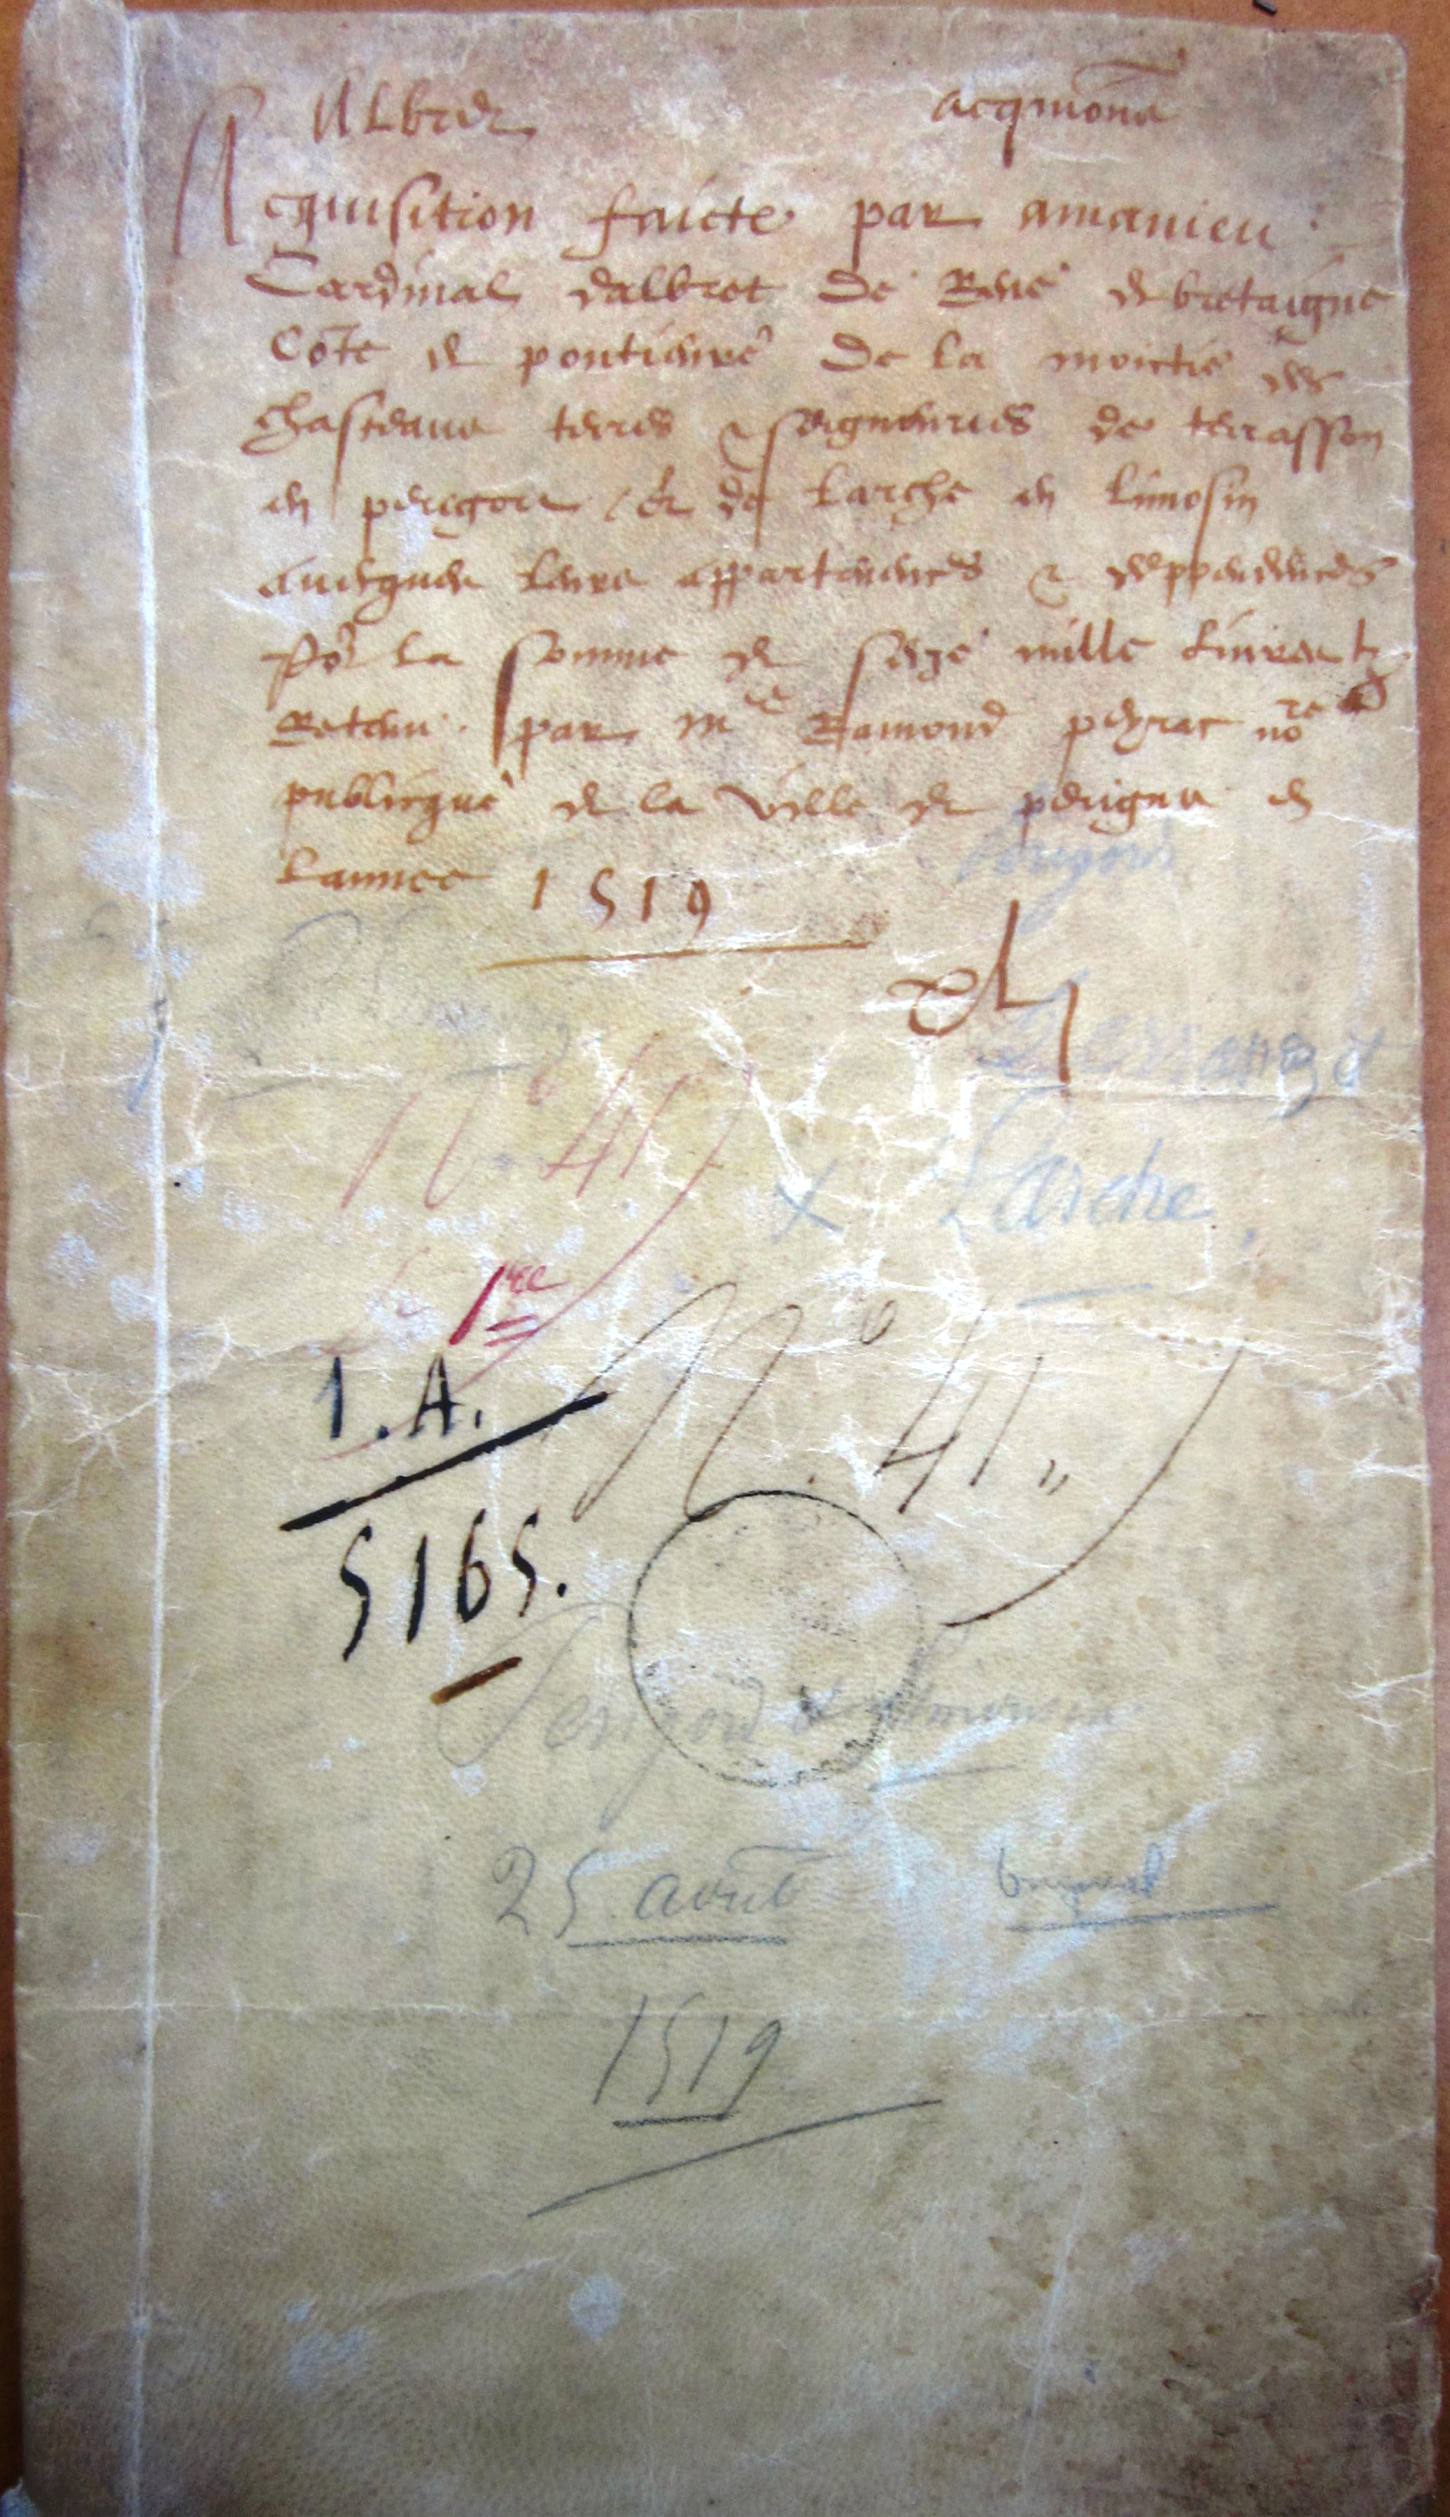 Albret acquisition̄
Acquisition faicte par amanieu
Cardinal dalbret de Rene de bretaigne
Cōte de pontieure de la moictie des
chasteaux terres & seigneuries de terrasson
en perigort / et de larche en limosin
auecques leurs appartenences & deppendences
Po^r la somme de seize mille liures tz
Retenu par m^e Ramond peyrac no^re
publicque de la ville de perigux en
lannee 1519
Perigord
xlj
Terrasson &
N° 41
x Larche
1re
1. A. N° 41 "
5165.
Perigord & Limousin
25. aout original
1519